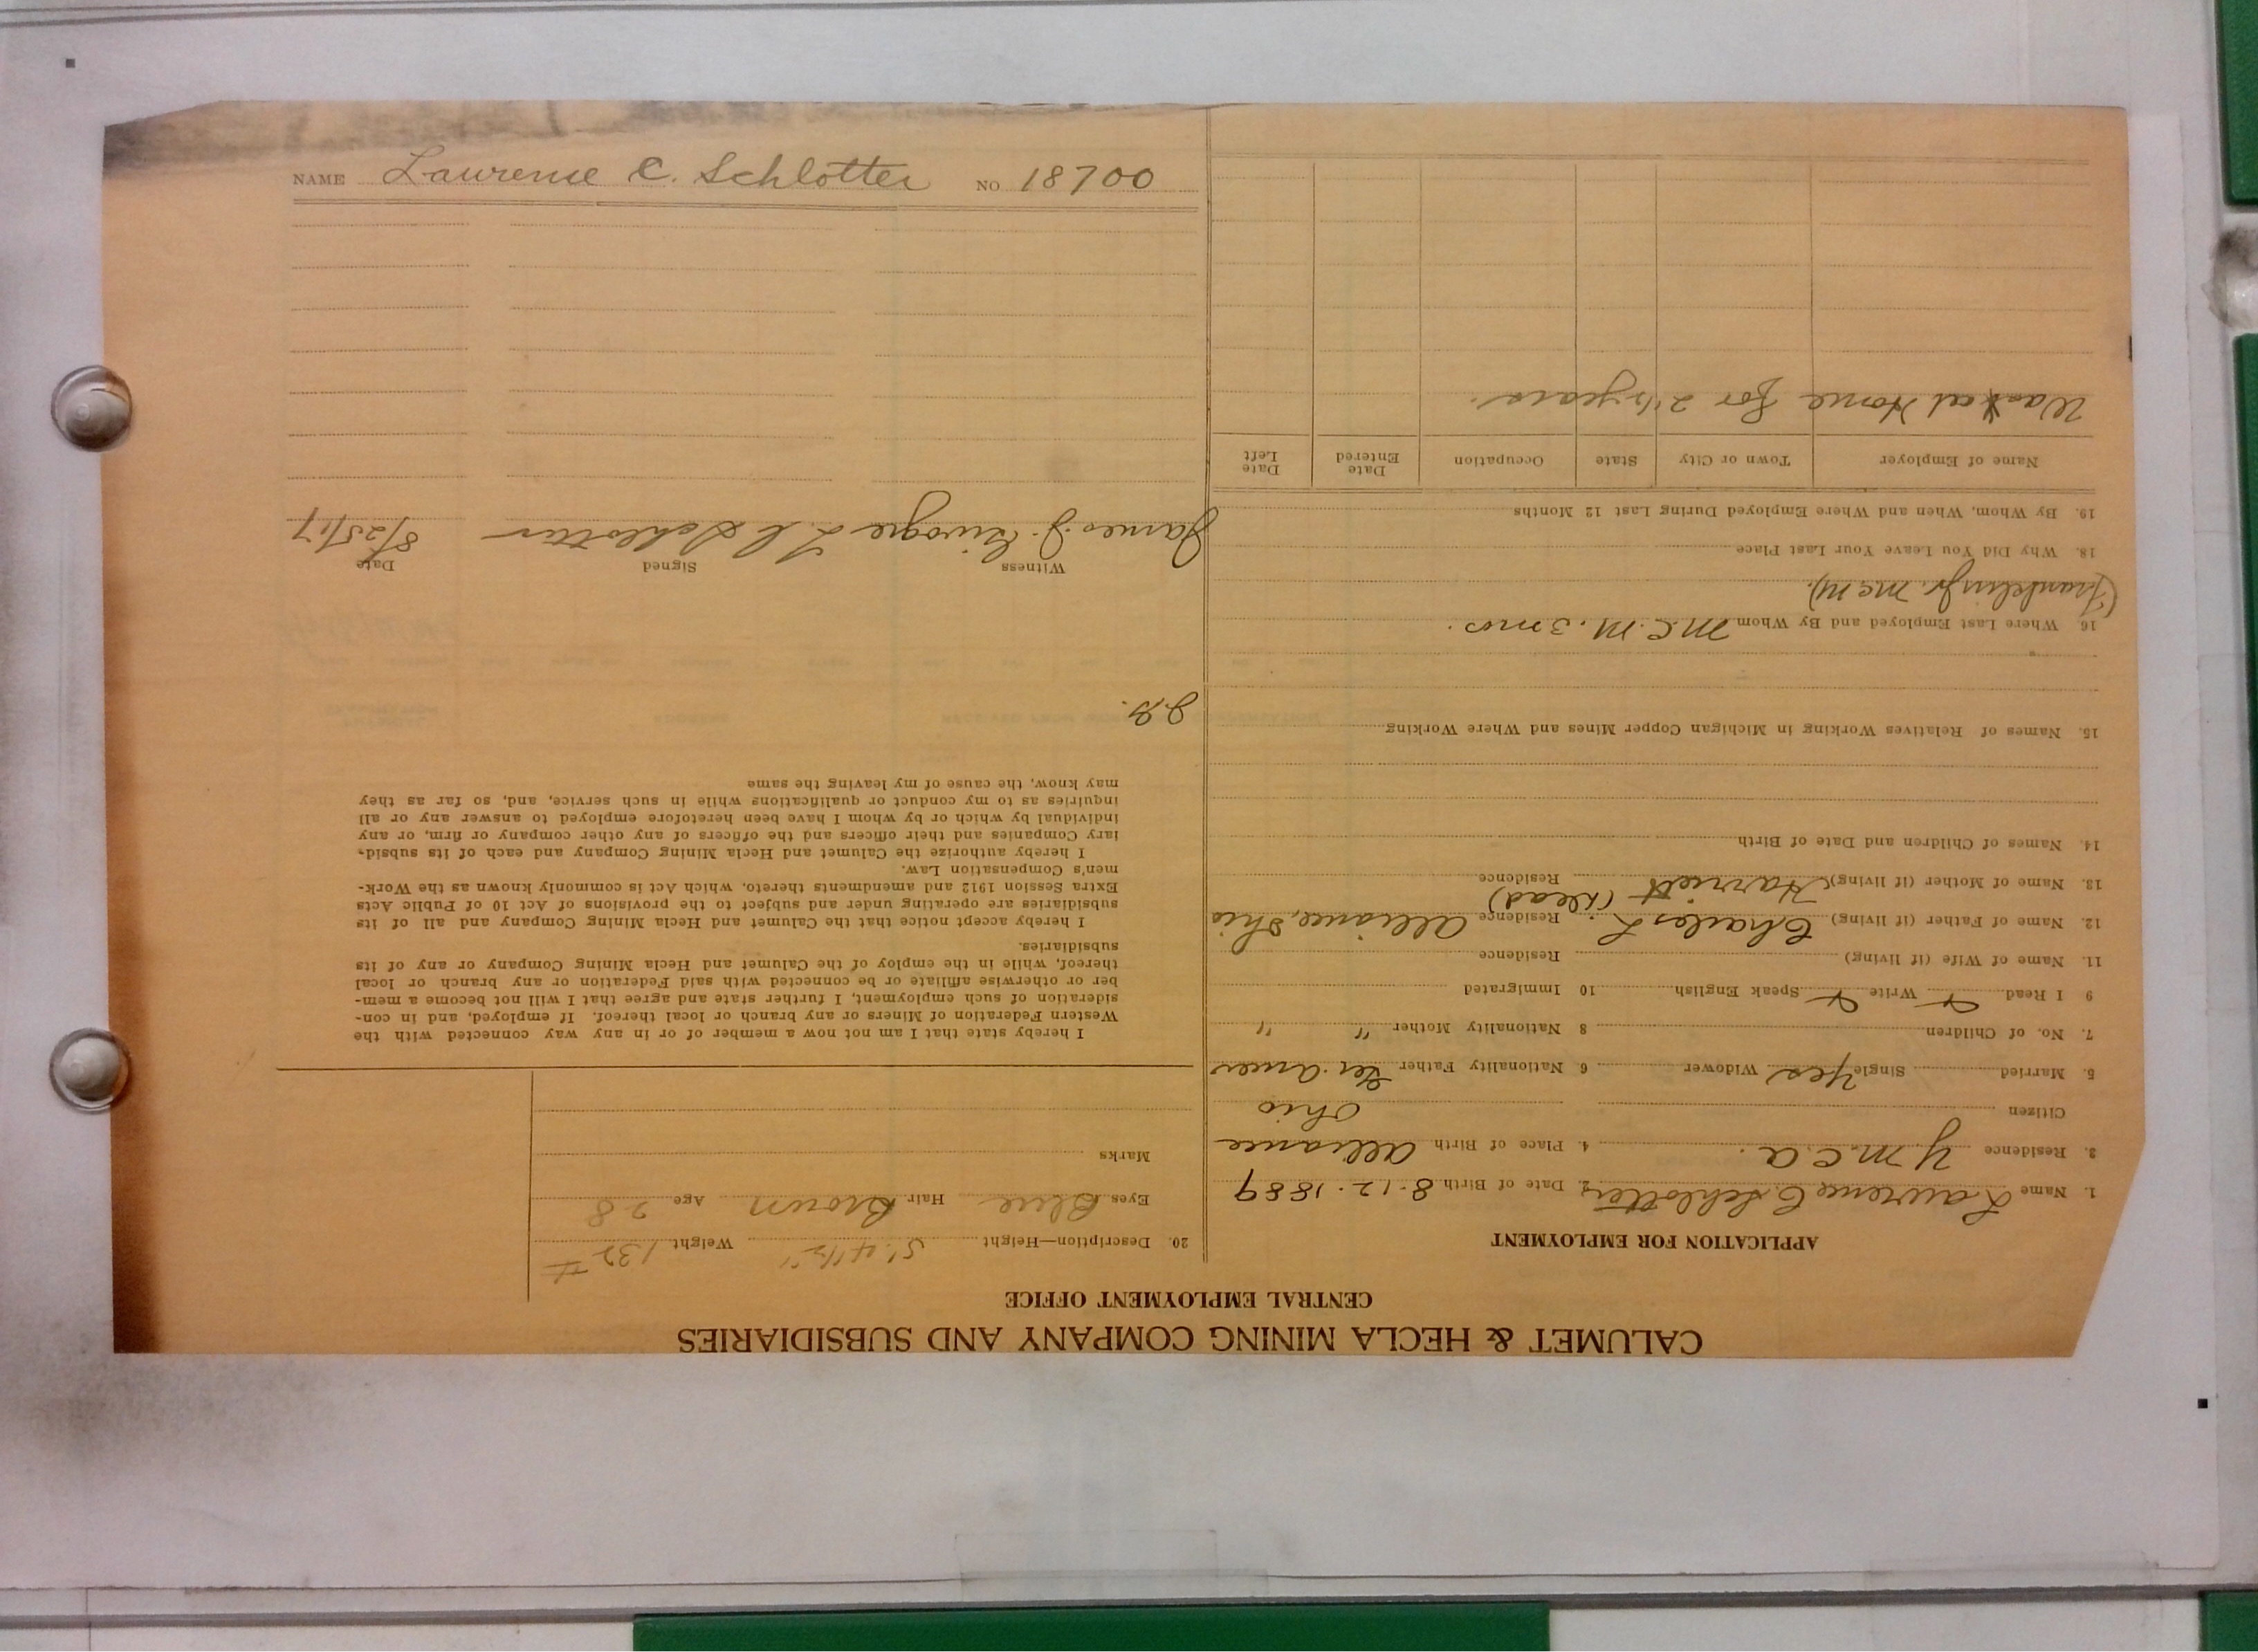 NAME Lawrence C. Schlotter NO. 18700
CALUMET & HECLA MINING COMPANY AND SUBSIDIARIES
CENTRAL EMPLOYMENT OFFICE
APPLICATION FOR EMPLOYMENT
1. Name Lawrence C. Schlotter 2. Date of Birth 8.12.1889
3. Residence Y.M.C.A. 4. Place of Birth Alliance
Citizen Ohio
5. Married Single Yes Widower 6 Nationality Father Ger. Amer
7. No. of Children 8 Nationality Mother " "
9 I Read Write Speak English 10 Immigrated
11. Name of Wife (if living) Residence
12. Name of Father (if living) Charles L. Residence Alliance, Ohio
13. Name of Mother (if living) Harriett (Dead) Residence
14. Names of Children and Date of Birth
15. Names of Relatives Working in Michigan Copper Mines and Where Working
16. Where Last Employed and By Whom M.C.M. 3 mos.
(Franklin Jr.
18. Why Did You Leave Your Last Place
19. By Whom, When and Where Employed During Last 12 Months
Name of Employer Town or City State Occupation Date Entered Date Left
Was at Home for 2 1/2 years.
20. Description—Height 5' 4 1/2" Weight 132 #
Eyes Blue Hair Brown Age 28
Marks
I hereby state that I am not now a member of or in any way connected with the
Western Federation of Miners or any branch or local thereof. If employed, and in con-
sideration of such employment, I further state and agree that I will not become a mem-
ber or otherwise affiliate or be connected with said Federation or any branch or local
thereof, while in the employ of the Calumet and Hecla Mining Company or any of its
subsidiaries.
I hereby accept notice that the Calumet and Hecla Mining Company and all of its
subsidiaries are operating under and subject to the provisions of Act 10 of Public Acts
Extra Session 1912 and amendments thereto, which Act is commonly known as the Work-
men's Compensation Law.
I hereby authorize the Calumet and Hecla Mining Company and each of its subsid-
iary Companies and their officers and the officers of any other company or firm, or any
individual by which or by whom I have been heretofore employed to answer any or all
inquiries as to my conduct or qualifications while in such service, and, so far as they
may know, the cause of my leaving the same
Witness Signed Date
James J. L C Schlotter 8/25/17